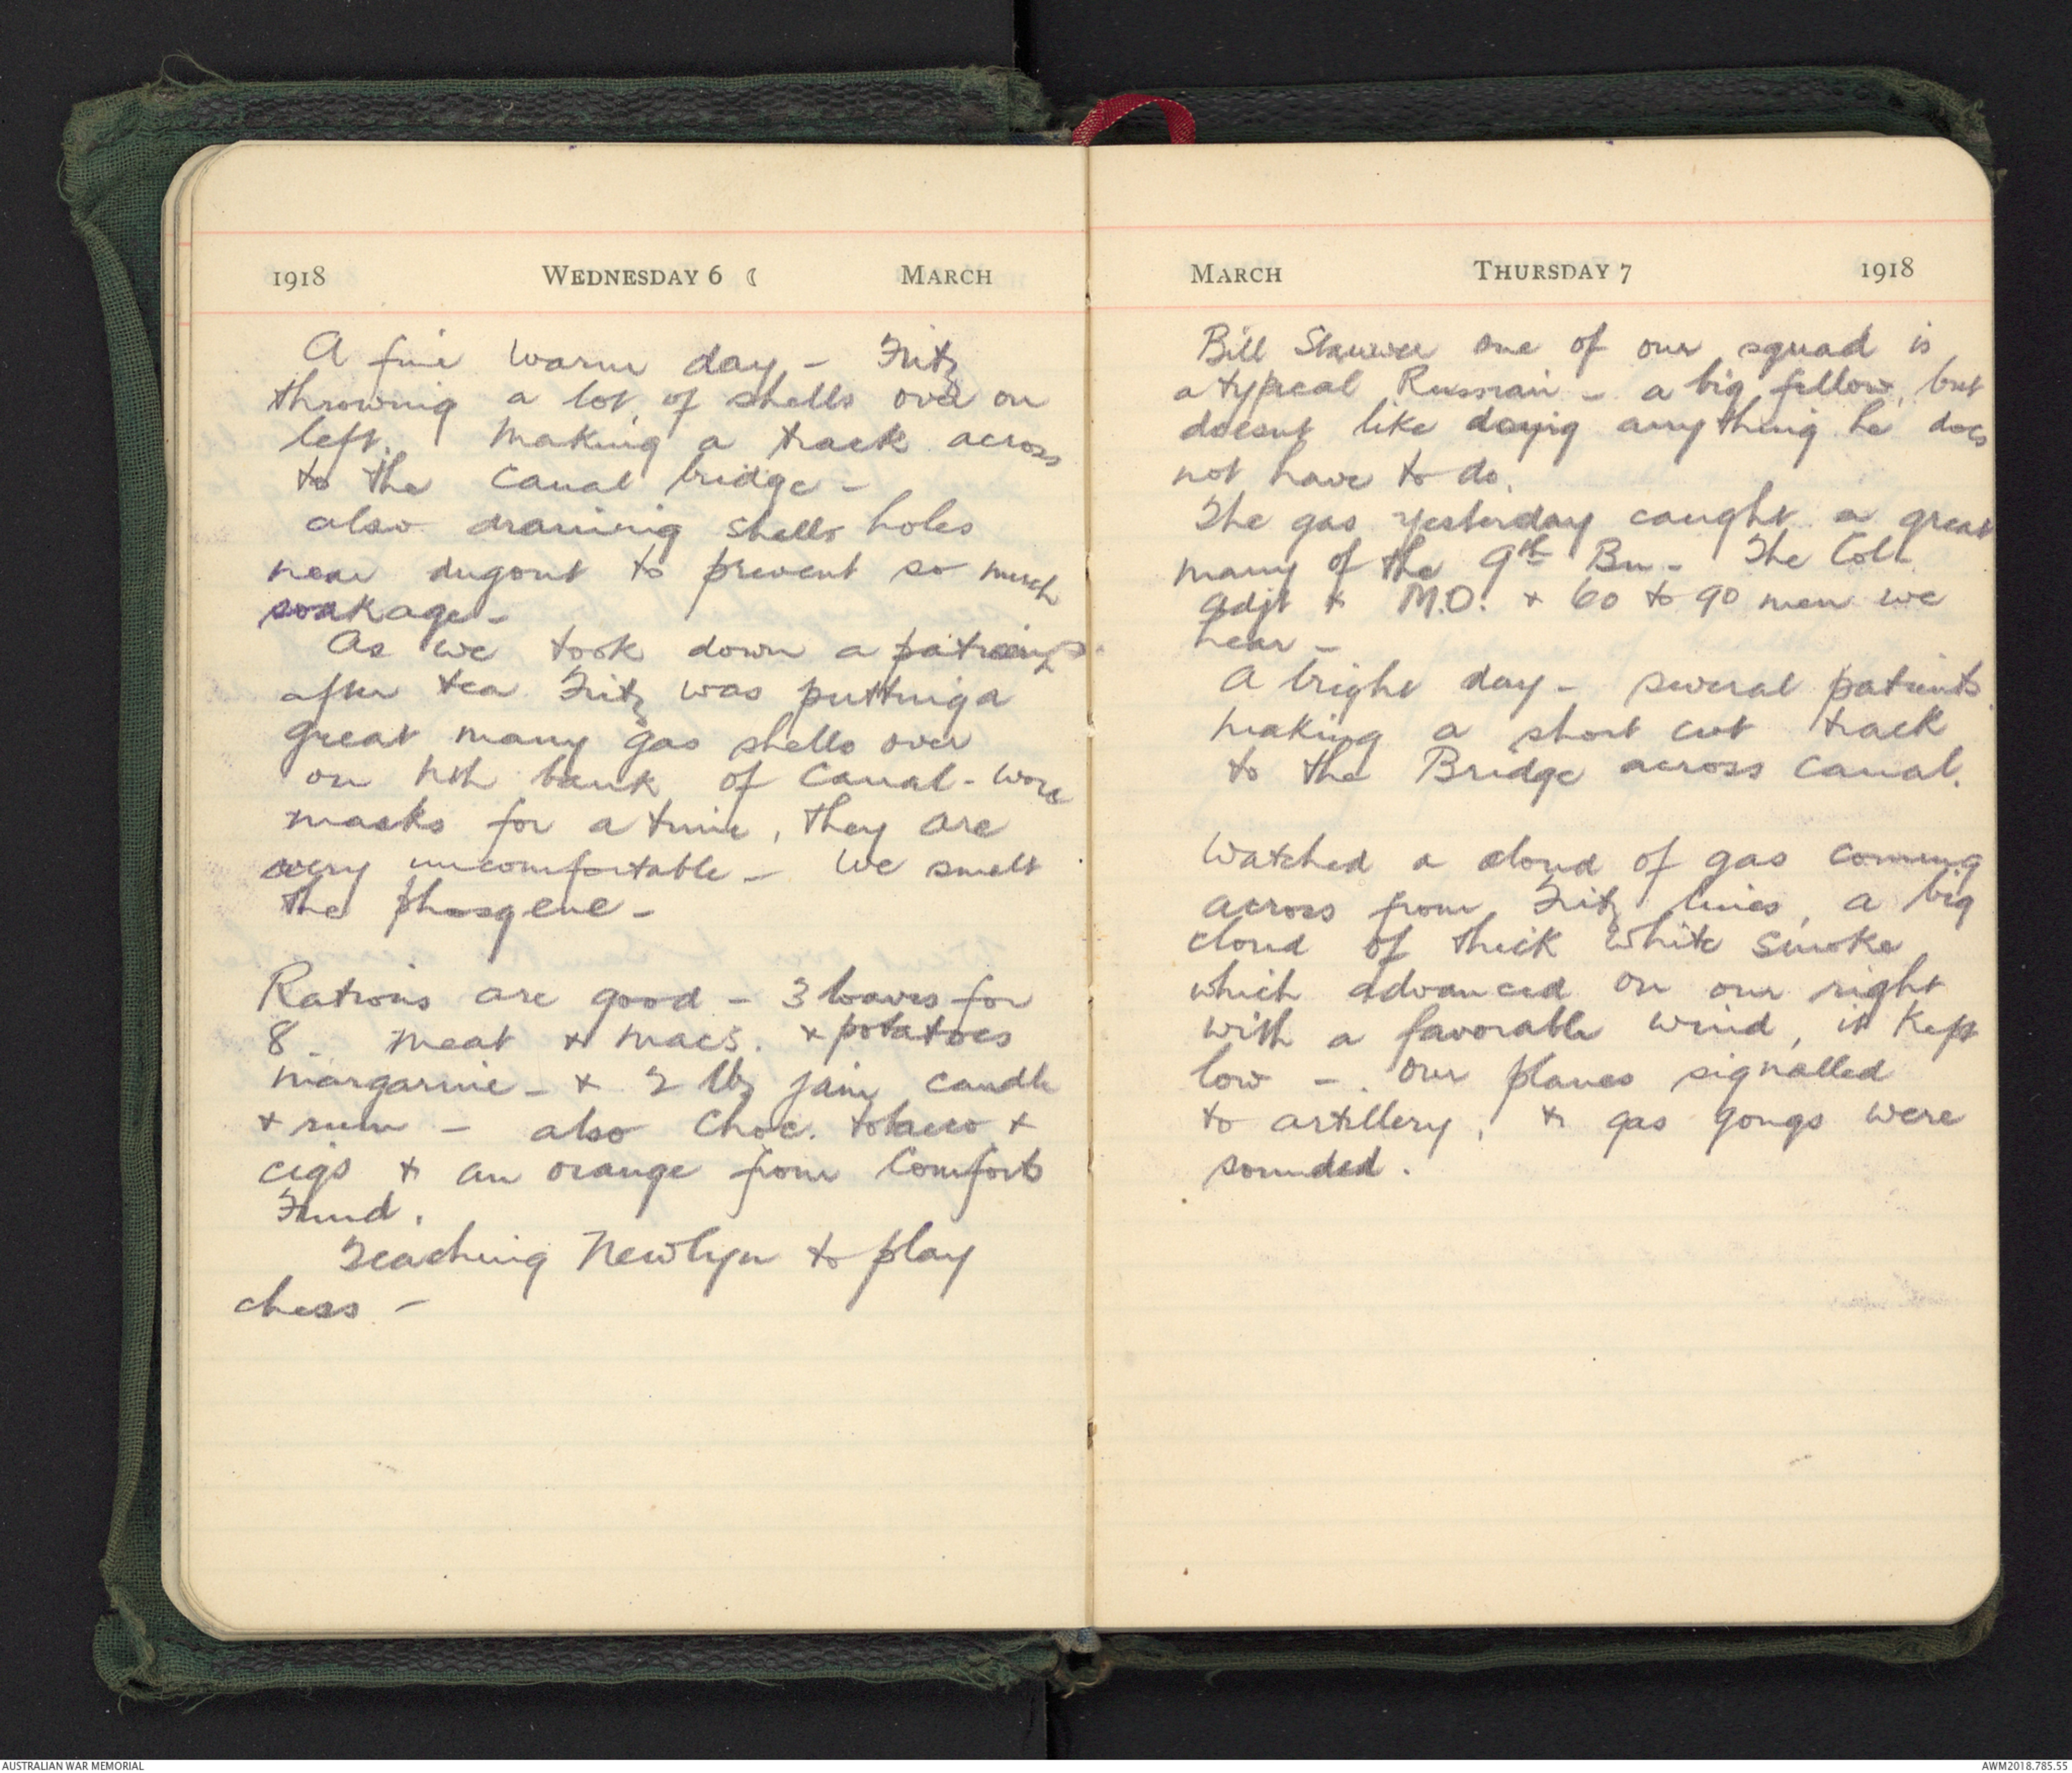 1918 WEDNESDAY 6 ☾ MARCH
A fine warm day - Fritz
throwing a lot of shells over on
left. Making a track across
to the canal bridge -
also draining shells holes
near dugout to prevent so much
soakage -
As we took down a patient
after tea Fritz was putting a
great many gas shells over
on nth bank of Canal - wore
masks for a time, they are
very uncomfortable - We smelt
the phosgene -
Rations are good - 3 loaves for
8 - meat & macs. & potatoes
margarine - & 2 lbs jam candle
& rum - also Choc. tobacco &
cigs & an orange from Comforts
Fund.
Teaching Newlyn to play
chess -
MARCH THURSDAY 7 1918
Bill one of our squad is
a typical Russian - a big fellow, but
doesnt like doing anything he does
not have to do.
The gas yesterday caught a great
many of the 9th Bn - The Coll
adjt & M.O. & 60 to 90 men we
hear -
A bright day - several patients.
Making a short cut track
to the Bridge across canal.
Watched a cloud of gas coming
across from Fritz lines, a big
cloud of thick white smoke
which advanced on our right
with a favorable wind, it kept
low - . Our planes signalled
to artillery, & gas gongs were
sounded.
AUSTRALIAN WAR MEMORIAL AWM2018.785.55